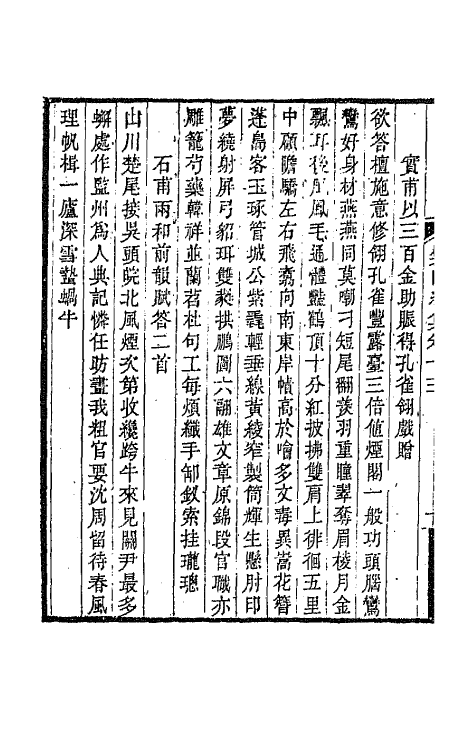 實甫以三百金助賑得孔雀翎戲贈
欲答檀施意修翎孔雀豐露臺三倍値煙閣一般功頭腦驚
鸞好身材燕燕同莫嘲刁短尾翻羨羽重瞳翠奪眉棱月金
飄耳後風毛通體豔鶴頂十分紅披拂雙肩上徘徊五里
中顧瞻驕左右飛翥向南東岸幘高於噲多文毒異蒿花簪
蓬島客玉琢管城公紫氄輕垂線黃綾窄製筒輝生懸肘印
夢繞射屏弓貂珥雙蕤拱鵬圖六翮雄文章原錦段官職亦
雕籠芍藥韓祥並蘭苕杜句工每煩纖手卸釵索挂瓏璁
石甫兩和前韻賦答二首
山川楚尾接吳頭皖北風煙次第收纔跨牛來見關尹最多
蠏處作監州爲人典記憐任昉畫我粗官要沈周留待春風
理帆楫一廬深雪蟄蝸牛